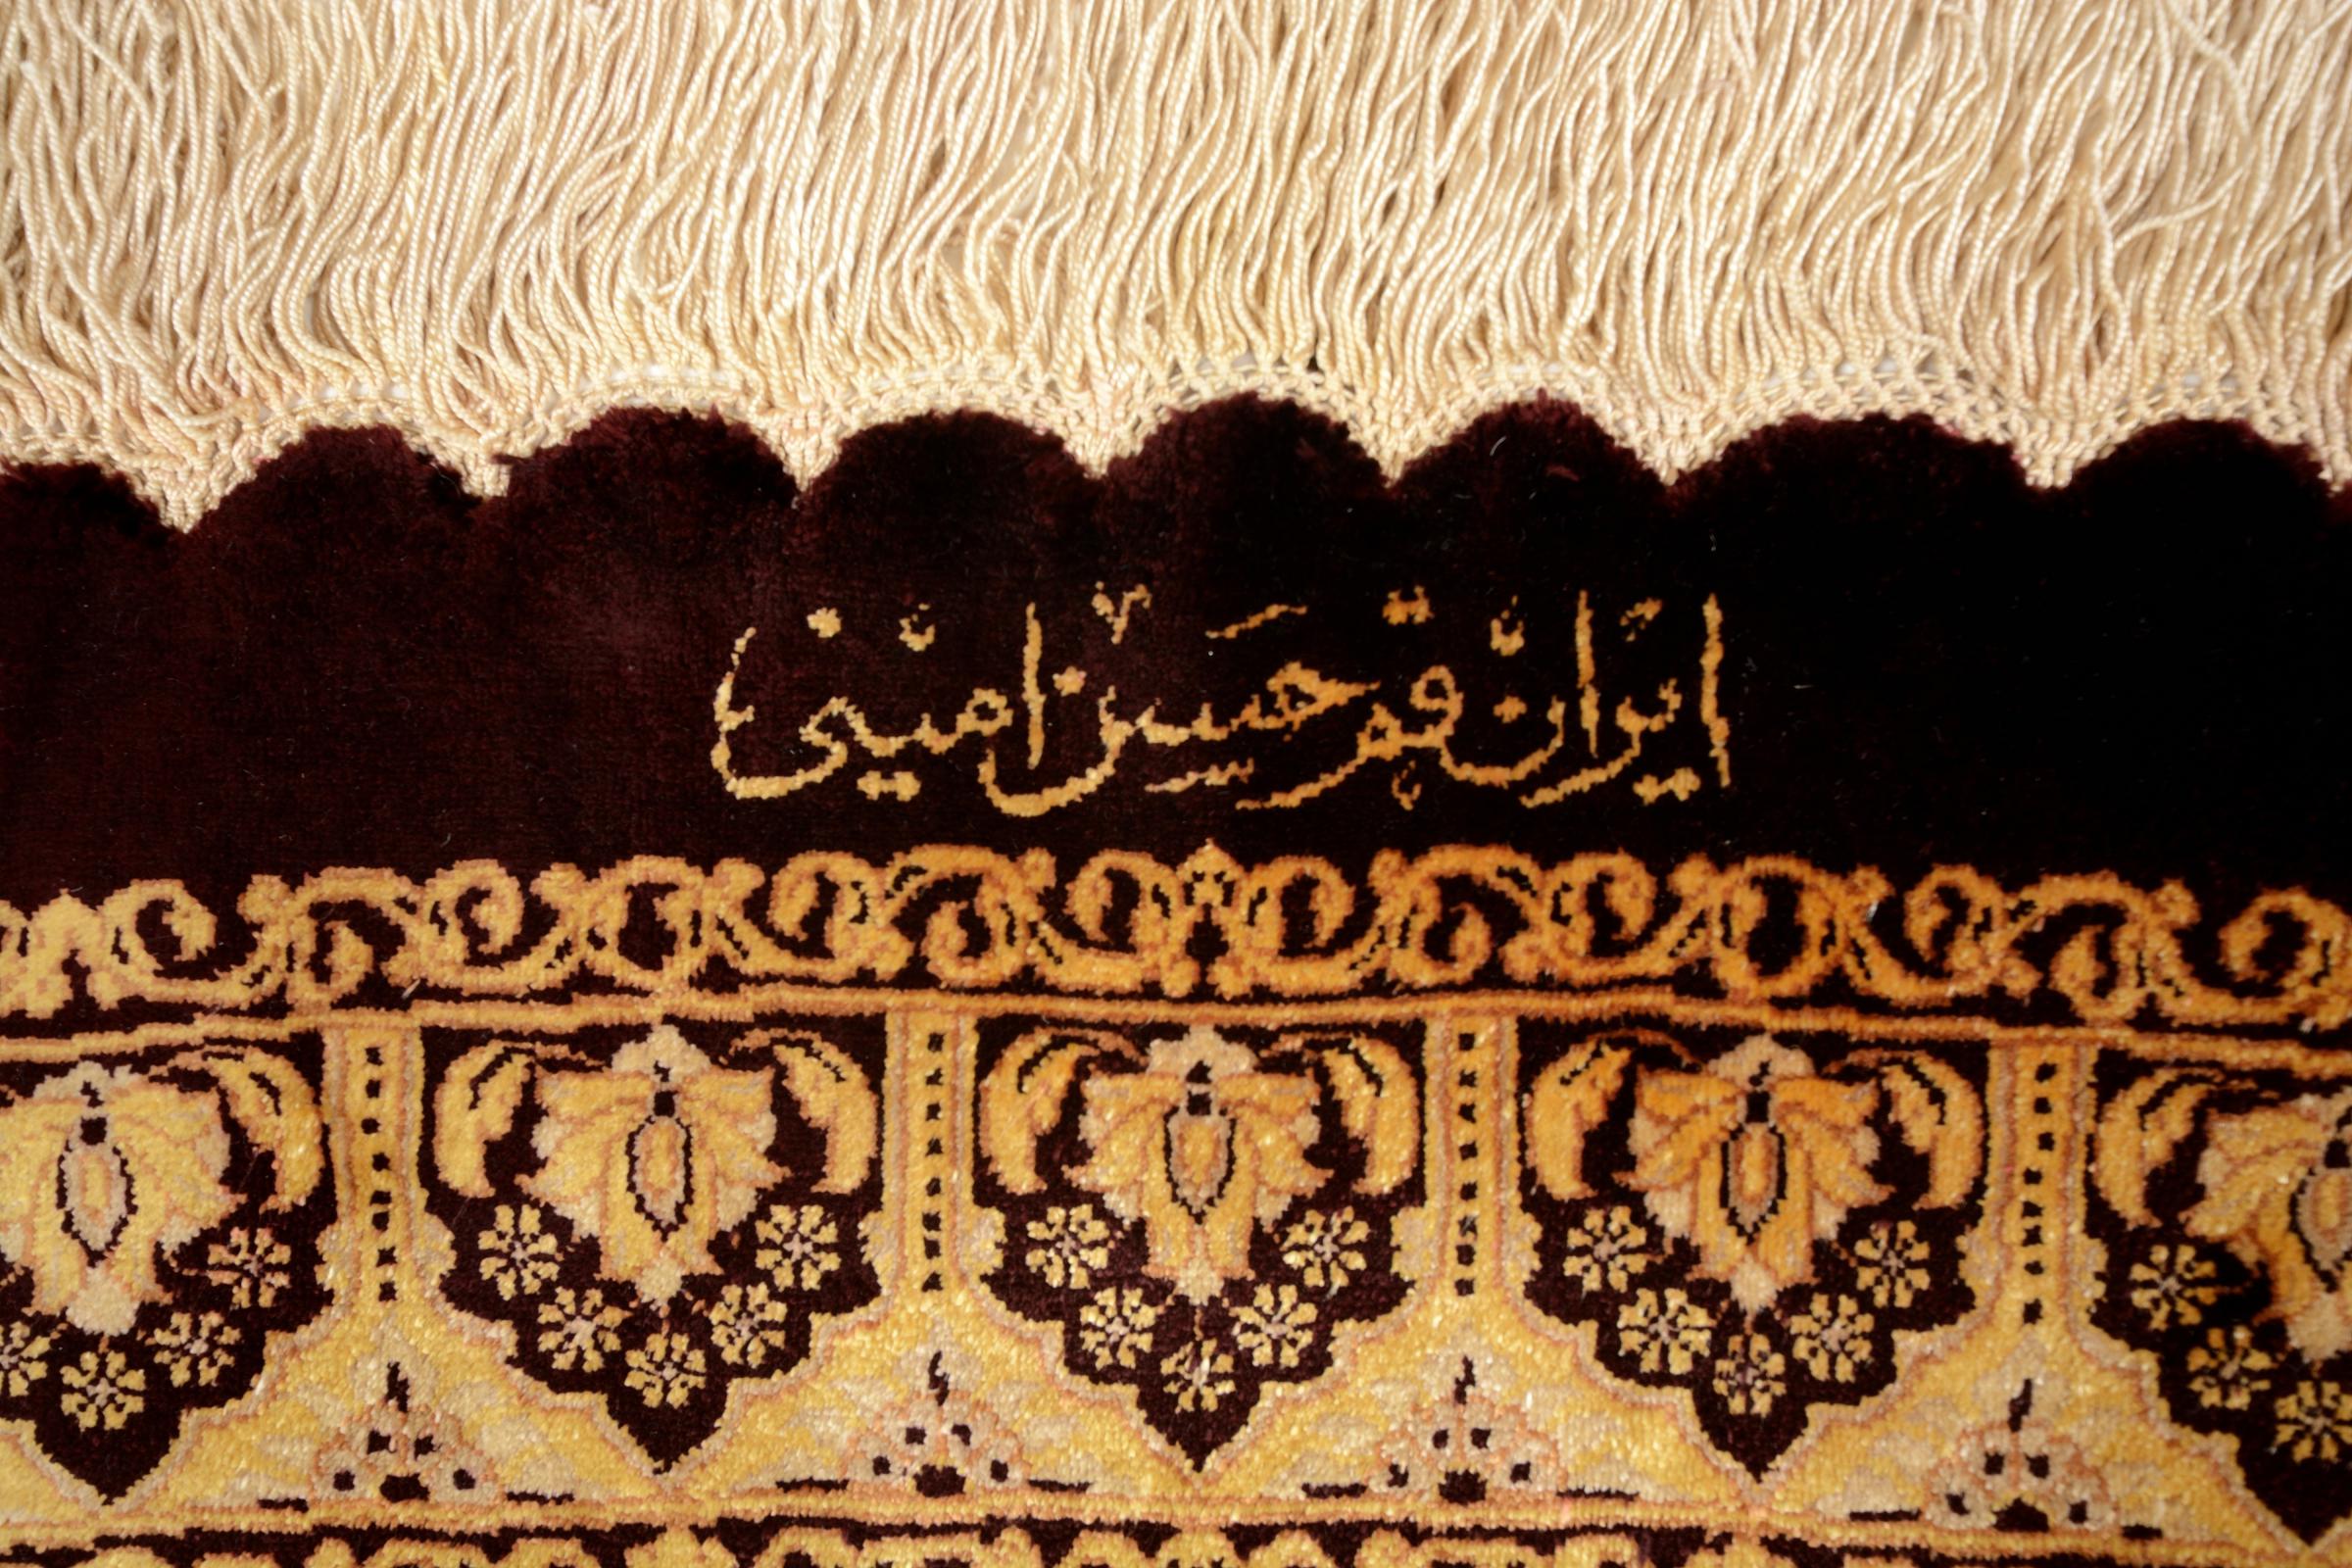 ایران قم حسین امینی